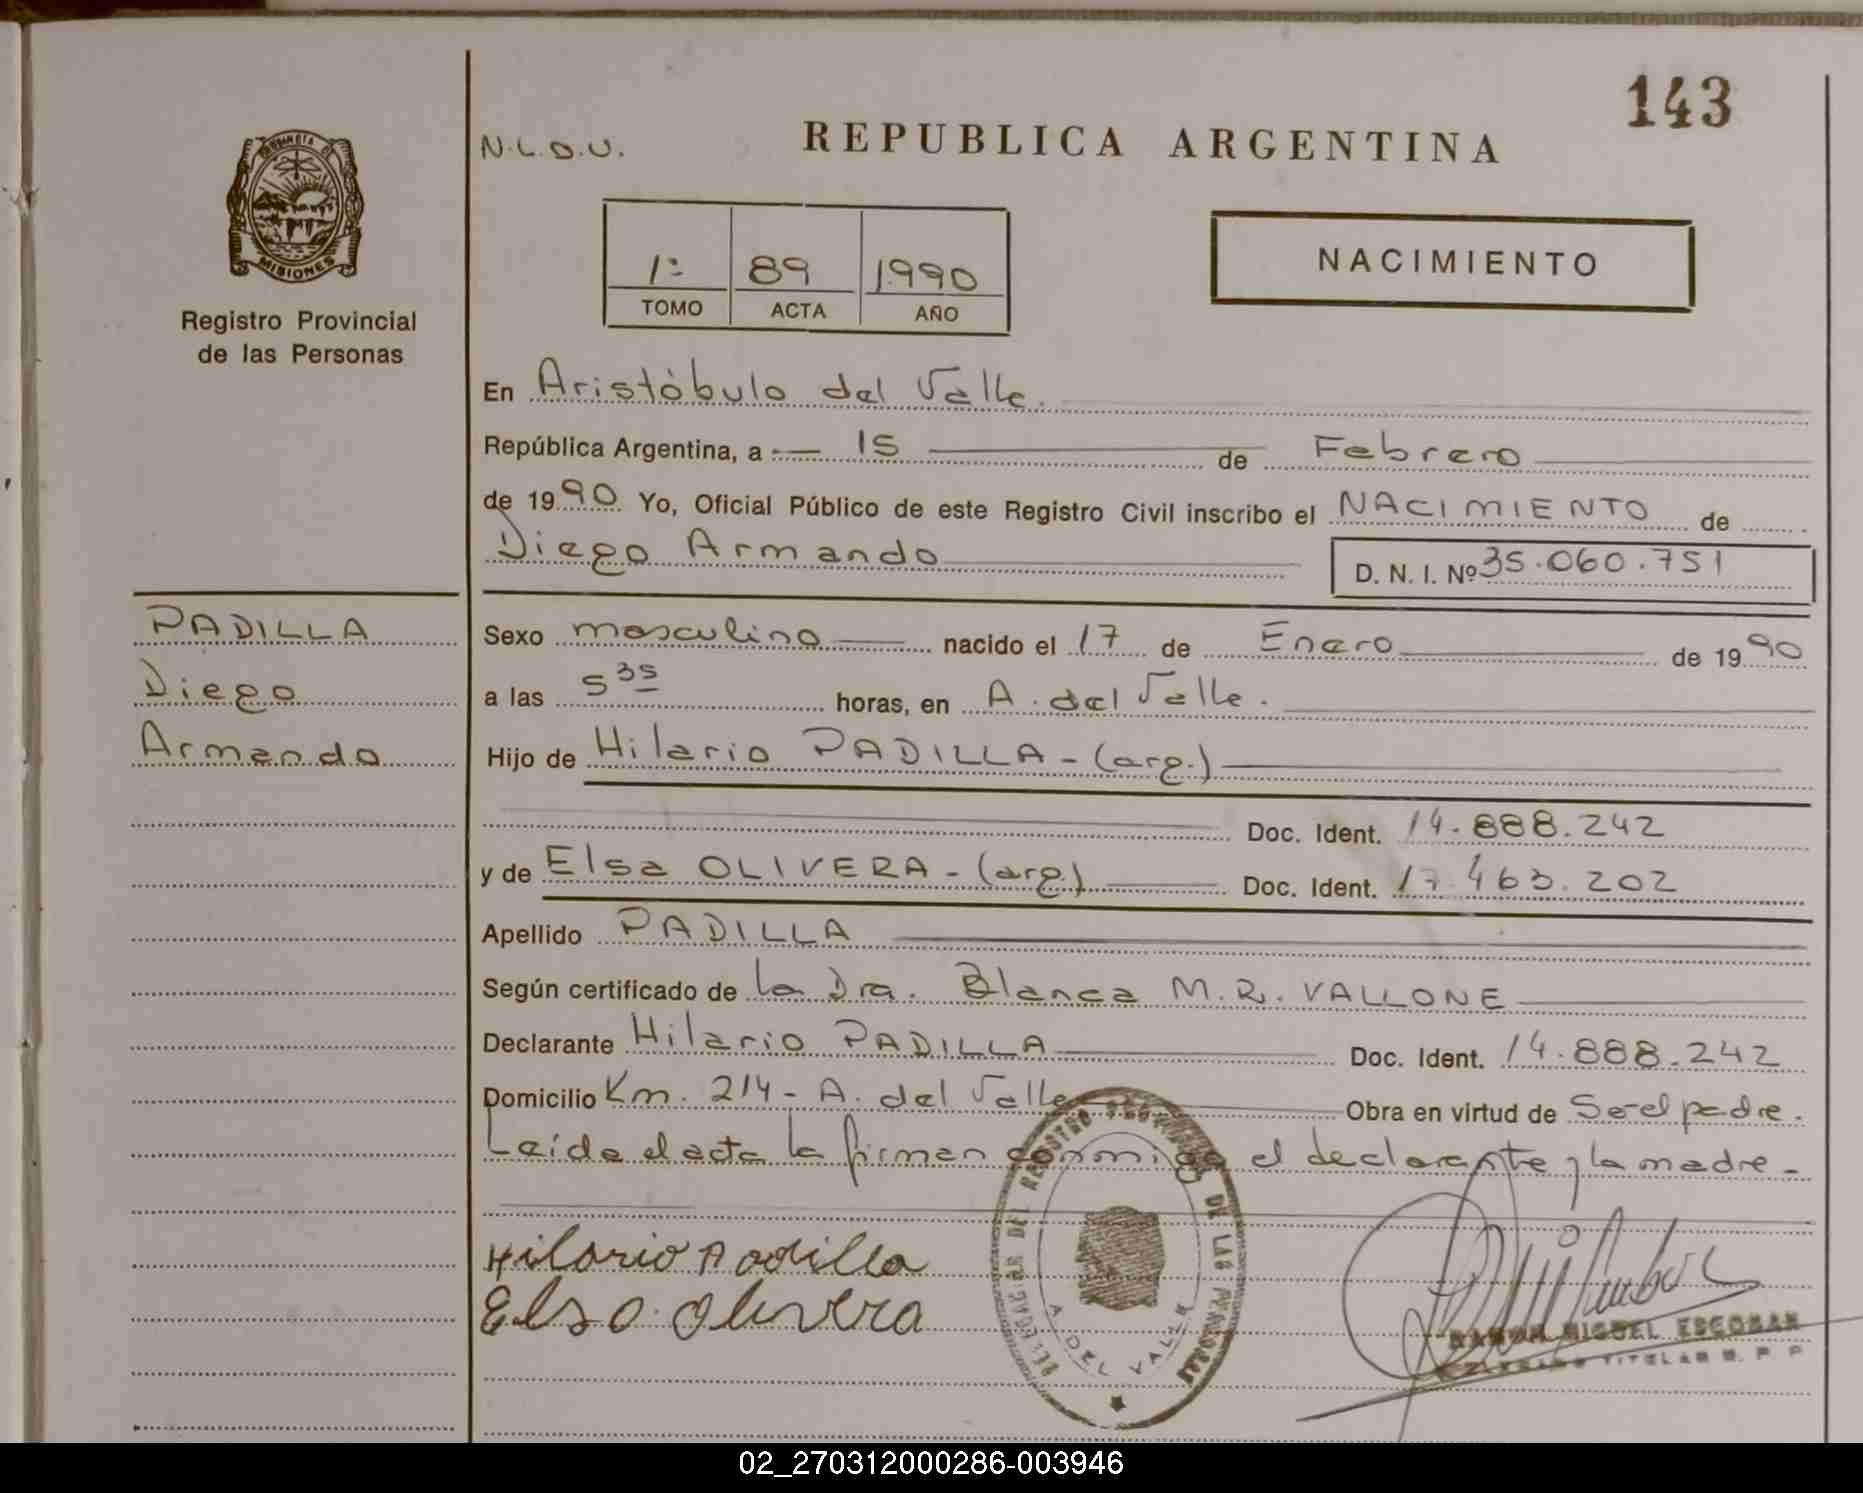 143
N.L.O.U.
REPUBLICA ARGENTINA
PROVINCIA DE
MISIONES
Registro Provincial
de las Personas
1º 89 1.990
TOMO ACTA AÑO
NACIMIENTO
En Aristóbulo del Valle.
República Argentina, a 15 de Febrero
de 1990 Yo, Oficial Público de este Registro Civil inscribo el NACIMIENTO de
Diego Armando
D. N. I. Nº 35.060.751
PADILLA
Diego
Armando
Sexo masculino nacido el 17 de Enero de 1990
a las 5 35 horas, en A. del Valle.
Hijo de Hilario PADILLA - (arg.)
Doc. Ident. 14.888.242
y de Elsa OLIVERA - (arg.) Doc. Ident. 17.463.202
Apellido PADILLA
Según certificado de la Dra. Blanca M.R. VALLONE
Declarante Hilario PADILLA Doc. Ident. 14.888.242
Domicilio Km. 214 - A. del Valle Obra en virtud de Ser el padre.
Leída el acta la firman conmigo el declarante y la madre -
Hilario Padilla
Elsa Olivera
DEL REGISTRO DE LAS PERSONAS
A. DEL VALLE
RAMON MIGUEL ESCOBAR
TITULAR R. P. P.
02_270312000286-003946